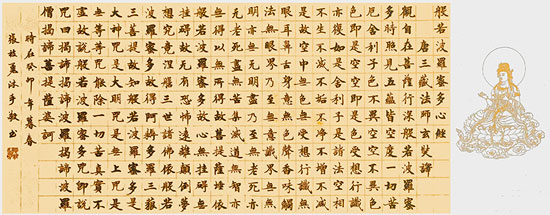 般若波羅蜜多心經
唐三藏法師玄奘譯
觀自在菩薩行深般若波羅蜜
多時照見五蘊皆空度一切苦
厄舍利子色不異空空不異色
色即是空空即是色受想行識
亦復如是舍利子是諸法空相
不生不滅不垢不淨不增不減
是故空中無色無受想行識無
眼耳鼻舌身意無色聲香味觸
法無眼界乃至無意識界無無
明亦無無明盡乃至無老死亦
無老死盡無苦集滅道無智亦
無得以無所得故菩提薩埵依
般若波羅蜜多故心無罣礙無
罣礙故無有恐怖遠離顛倒夢
想究竟涅槃三世諸佛依般若
波羅蜜多故得阿耨多羅三藐
三菩提故知般若波羅蜜多是
大神咒是大明咒是無上咒是
無等等咒能除一切苦真實不
虛故說般若波羅蜜多咒即說
咒曰揭諦揭諦波羅揭諦波羅
僧揭諦菩提薩婆訶
時在癸卯年暮春
張桂麗沐手敬書